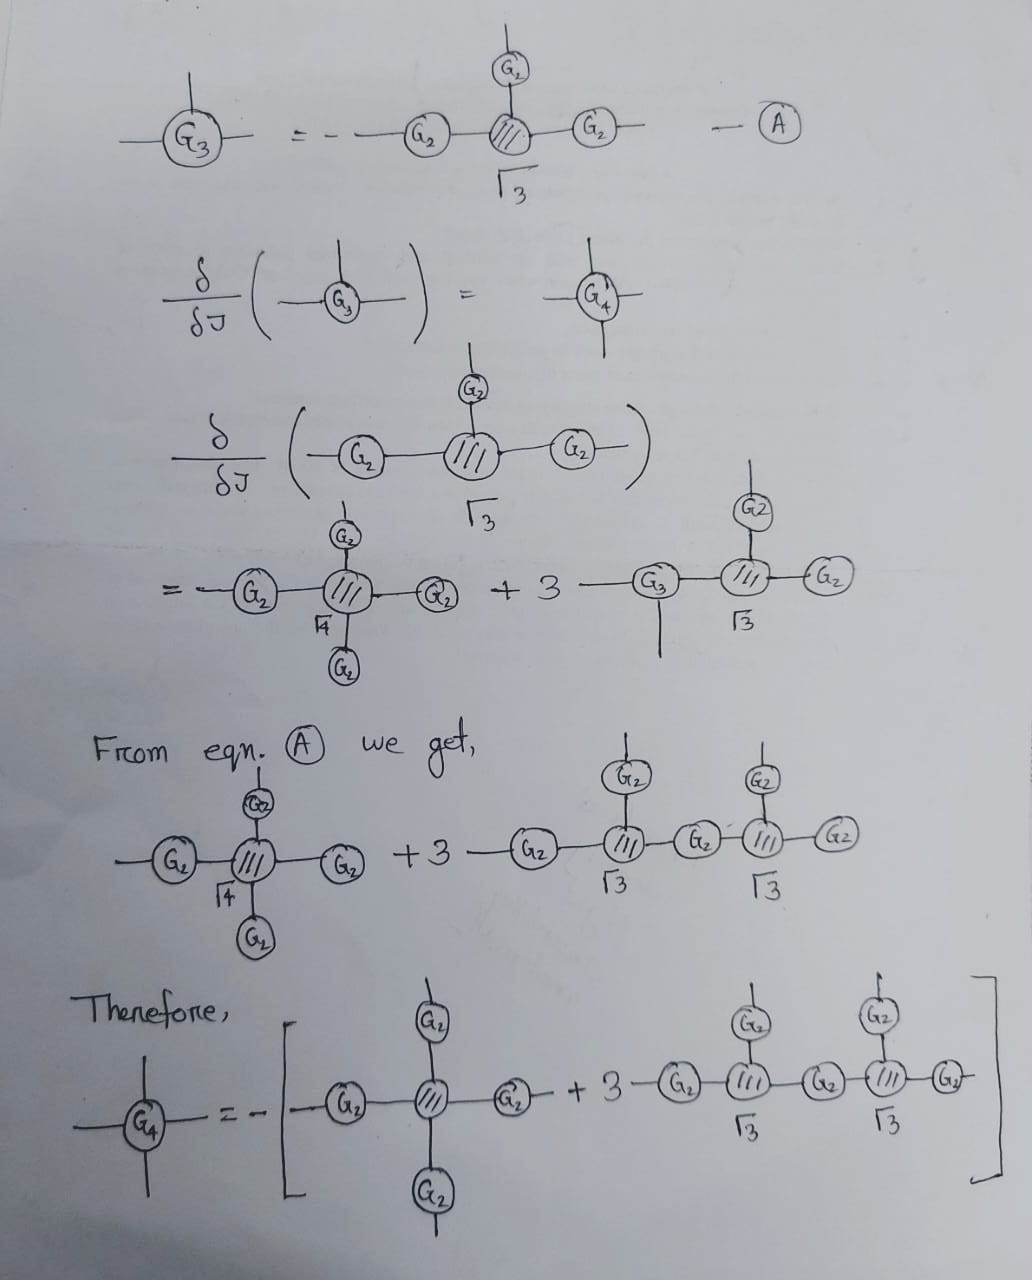 G₂
G₃ = - G₂ G₂ — Ⓐ
Γ₃
δ/δJ ( G₃ ) = G₄
G₂
δ/δJ ( G₂ G₂ )
Γ₃
G₂ G2
= - G₂ G₂ + 3 G₃ G₂
Γ4 Γ3
G₂
From eqn. Ⓐ we get,
G2 G₂ G2
G₂ G₂ + 3 G₂ G₂ G2
Γ4 Γ3 Γ3
G₂
Therefore,
G₂ G₂ G2
G₄ = - [ G₂ G₂ + 3 G₂ G₂ G₂ ]
Γ3 Γ3
G₂